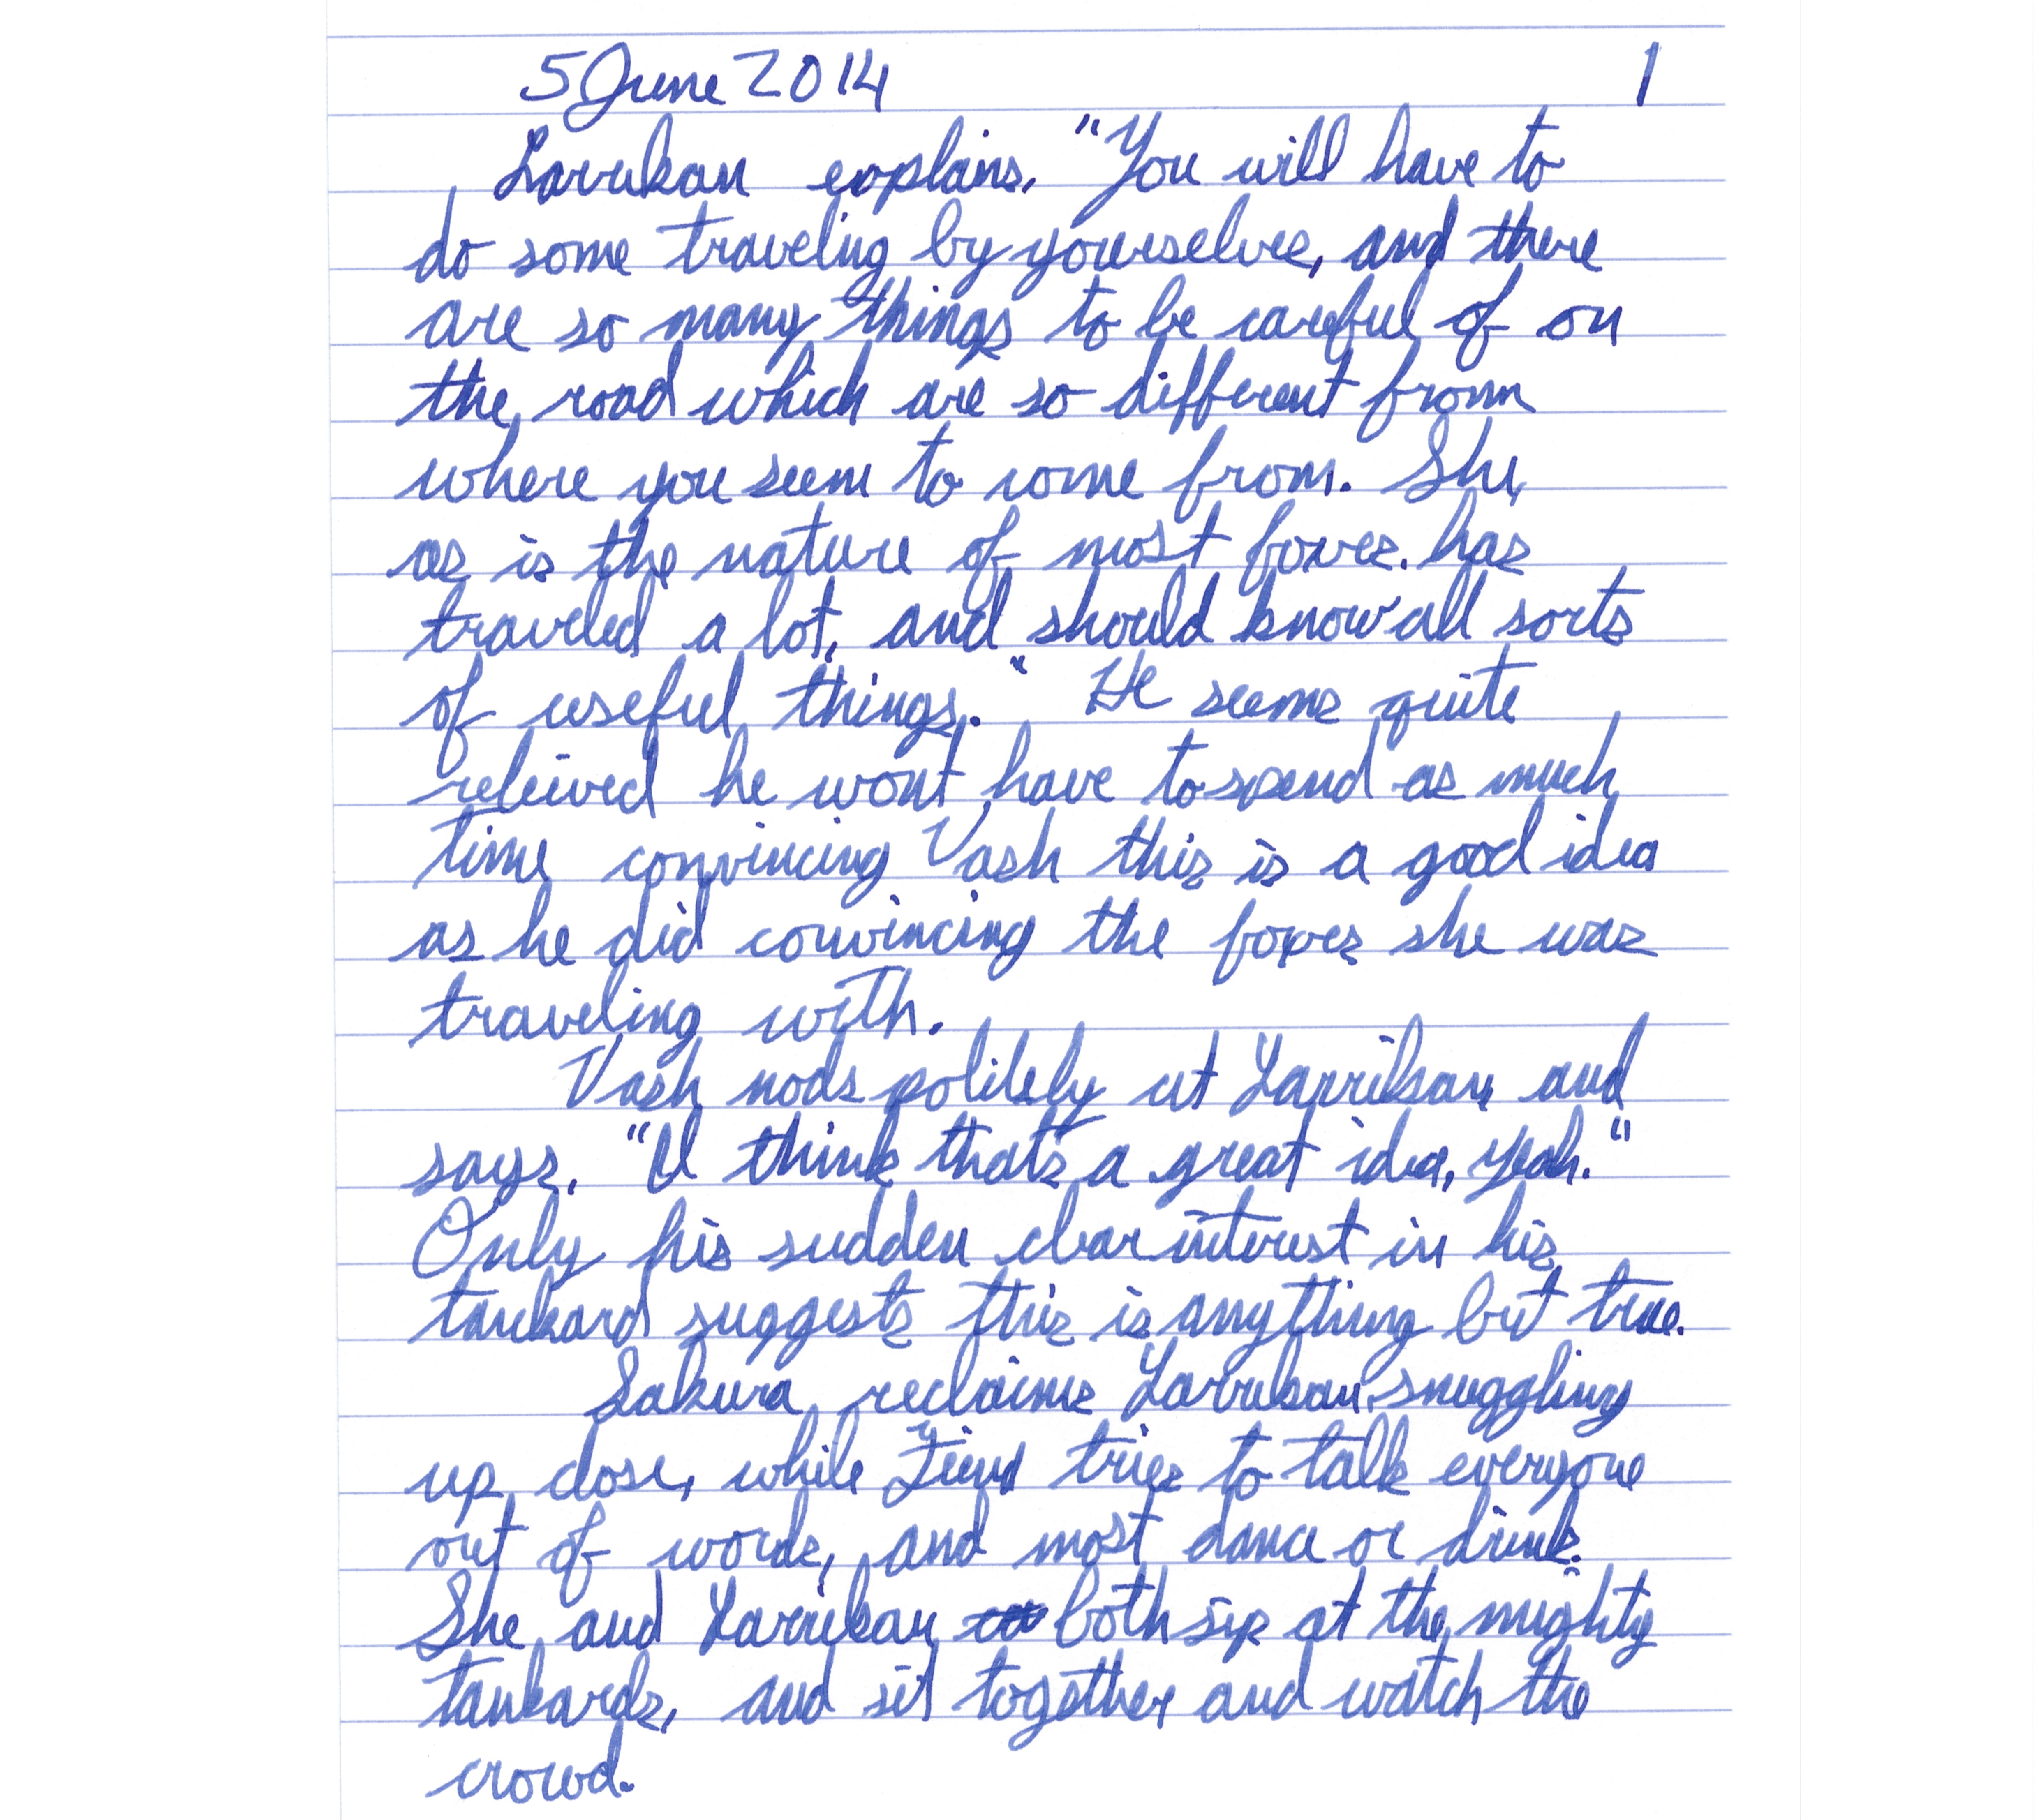 5 June 2014 1
Larrikan explains. "You will have to
do some traveling by yourselves, and there
are so many things to be careful of on
the road which are so different from
where you seem to come from. She,
as is the nature of most foxes. has
traveled a lot, and should know all sorts
of useful things." He seems quite
releived he wont have to spend as much
time convincing Vash this is a good idea
as he did convincing the foxes she was
traveling with.
Vash nods politely at Larrikan, and
says. "I think that's a great idea, yeah."
Only his sudden clear interest in his
tankard suggests this is anything but true.
Sakura reclaims Larrikan, snuggling
up close, while Fiend tries to talk everyone
out of words, and most dance or drink.
She and Larrikan both sip at the mighty
tankards, and sit together and watch the
crowd.